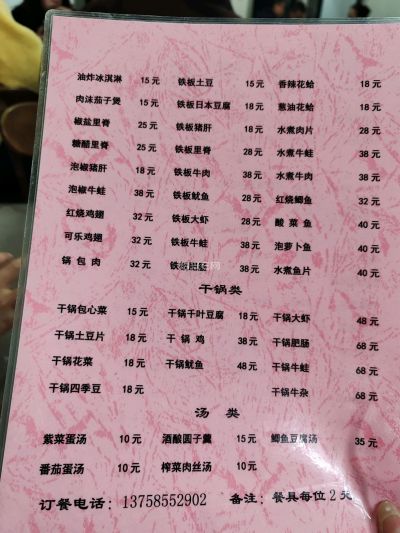 油炸冰淇淋 15元 铁板土豆 15元 香辣花蛤 18元
肉沫茄子煲 15元 铁板日本豆腐 18元 葱油花蛤 18元
椒盐里脊 25元 铁板猪肝 28元 水煮肉片 28元
糖醋里脊 25元 铁板里脊 28元 水煮牛蛙 38元
泡椒猪肝 18元 铁板牛肉 38元 水煮牛肉 38元
泡椒牛蛙 38元 铁板鱿鱼 28元 红烧鲫鱼 32元
红烧鸡翅 32元 铁板大虾 28元 酸菜鱼 40元
可乐鸡翅 32元 铁板牛蛙 38元 泡萝卜鱼 40元
锅包肉 32元 铁板肥肠 38元 水煮鱼片 40元
干锅类
干锅包心菜 15元 干锅千叶豆腐 18元 干锅大虾 48元
干锅土豆片 18元 干锅鸡 38元 干锅肥肠 68元
干锅花菜 18元 干锅鱿鱼 48元 干锅牛蛙 68元
干锅四季豆 18元 干锅牛杂 68元
汤类
紫菜蛋汤 10元 酒酿圆子羹 15元 鲫鱼豆腐汤 35元
番茄蛋汤 10元 榨菜肉丝汤 10元
订餐电话：13758552902 备注：餐具每位2元